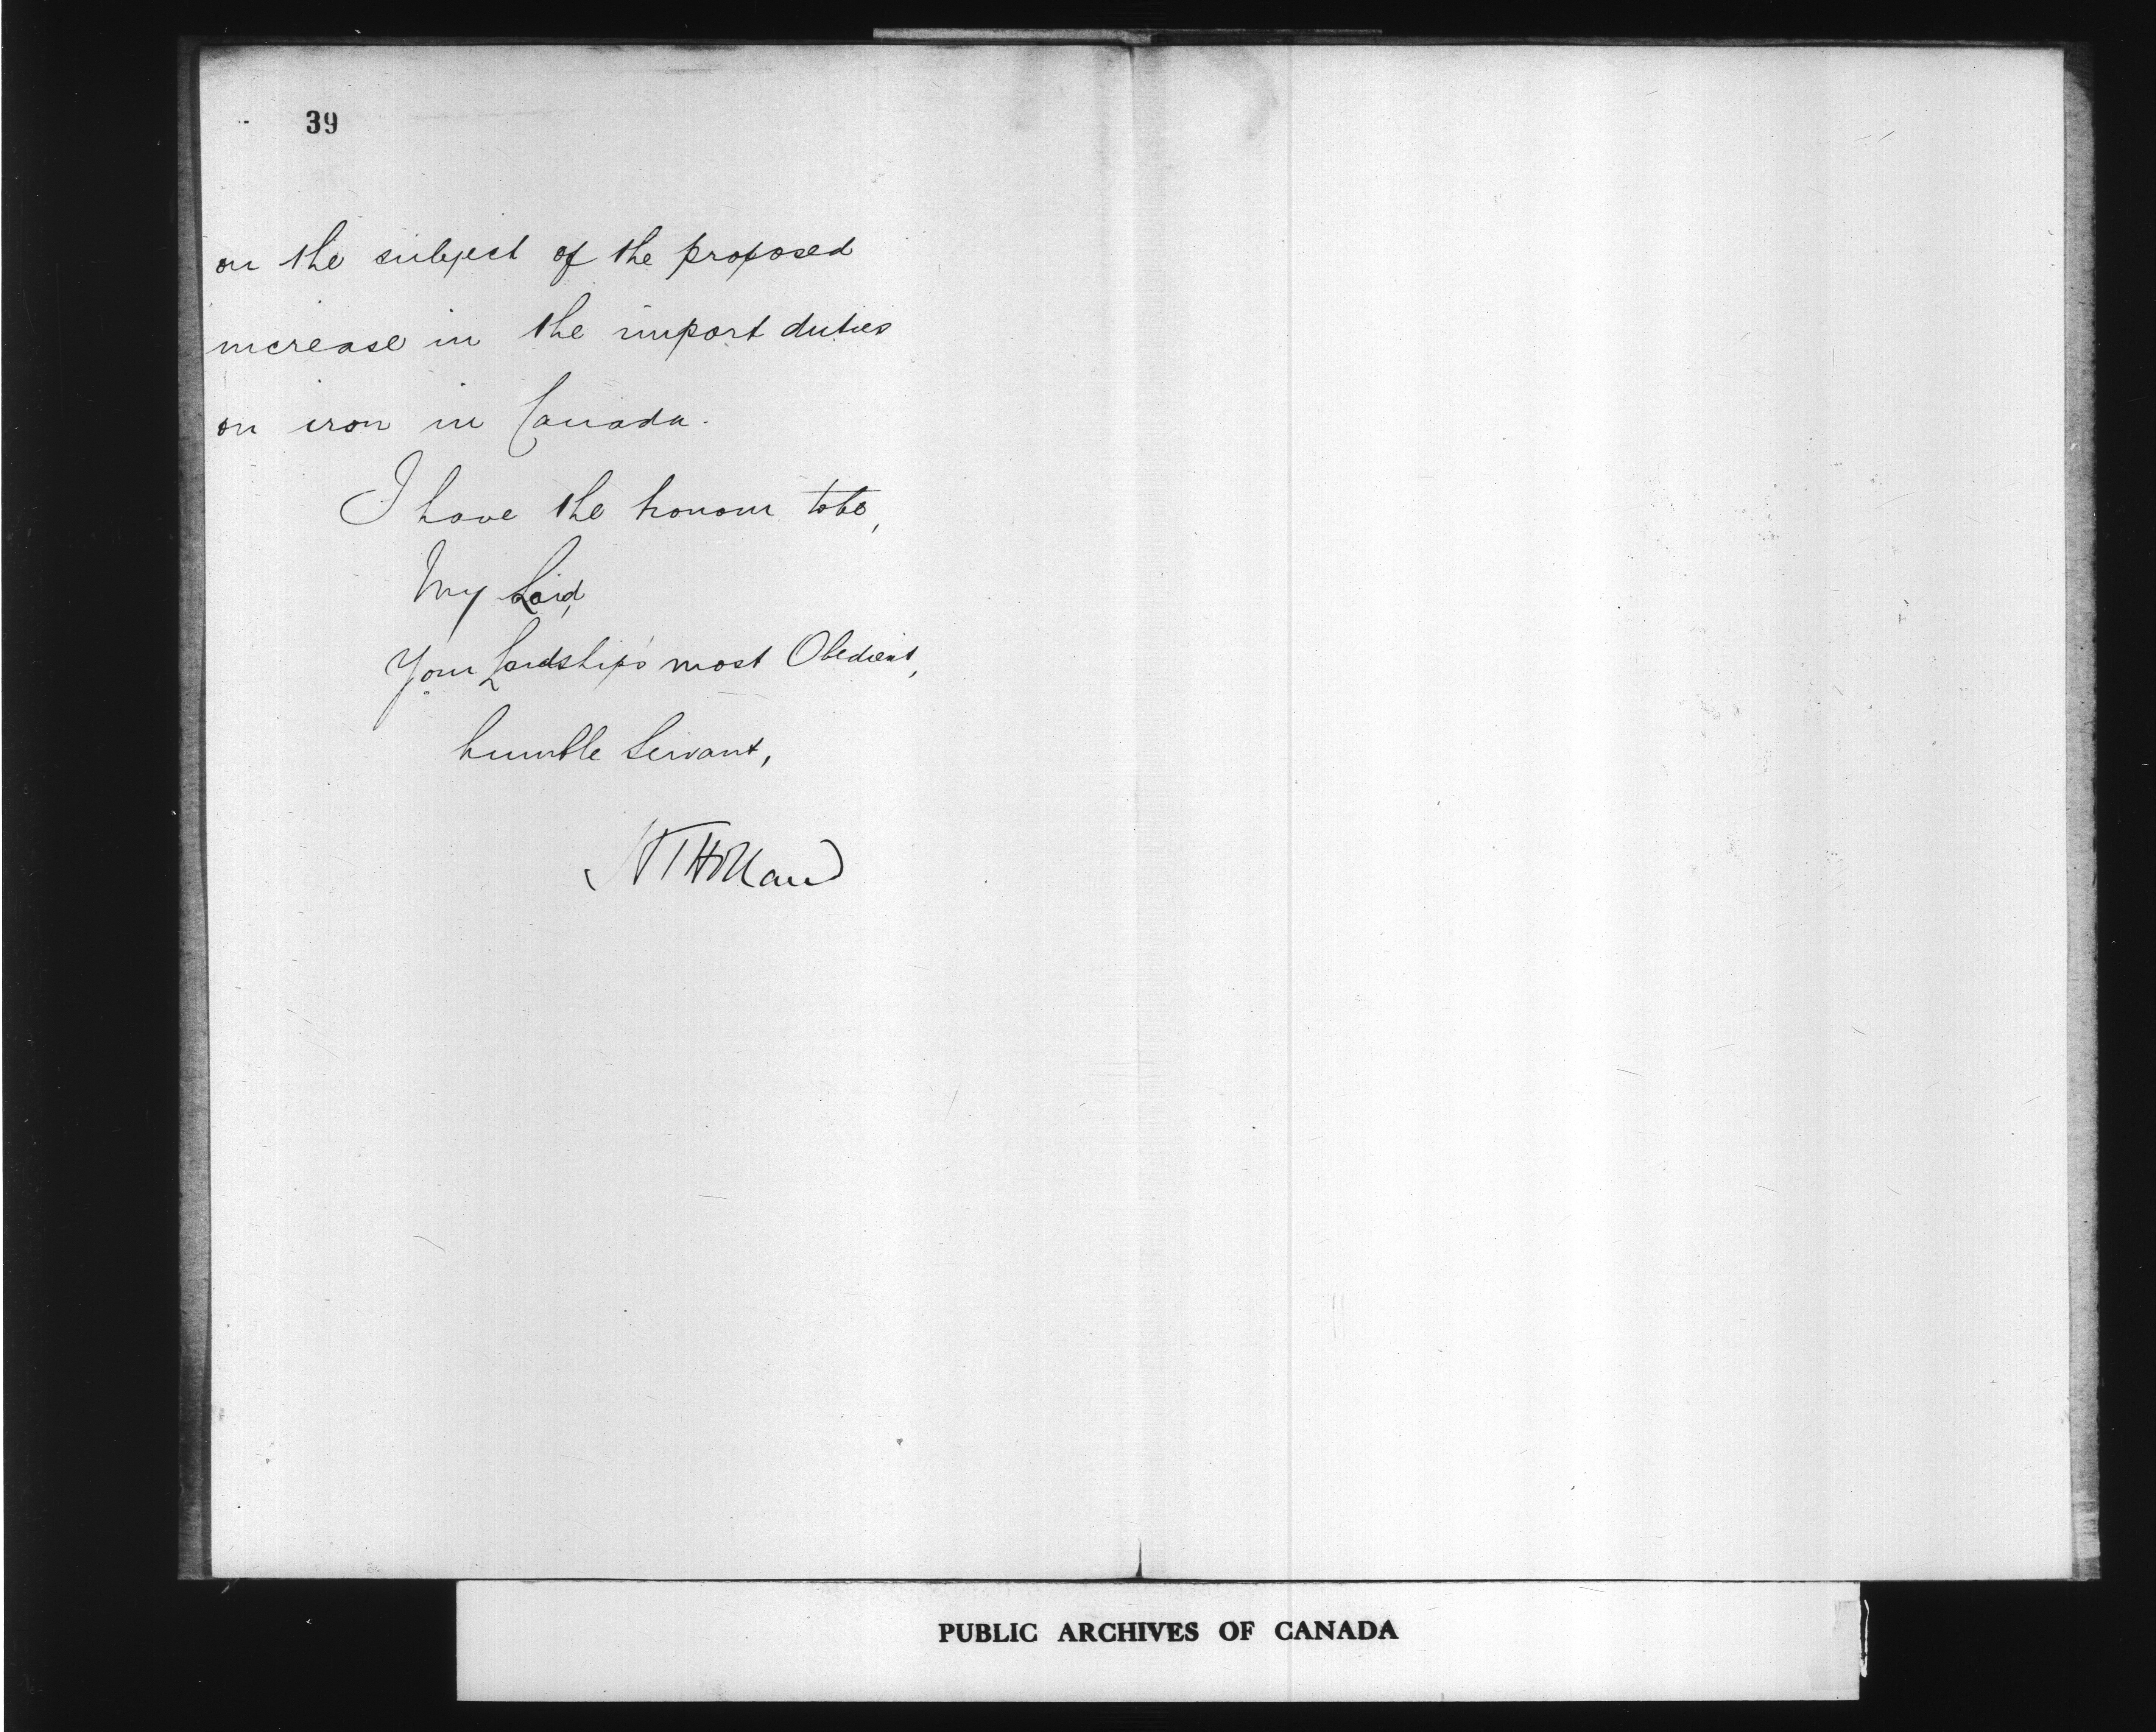 39
on the subject of the proposed
increase in the import duties
on iron in Canada.
I have the honour to be,
My Lord,
Your Lordship's most Obedient,
humble Servant,
H T Holland
PUBLIC ARCHIVES OF CANADA